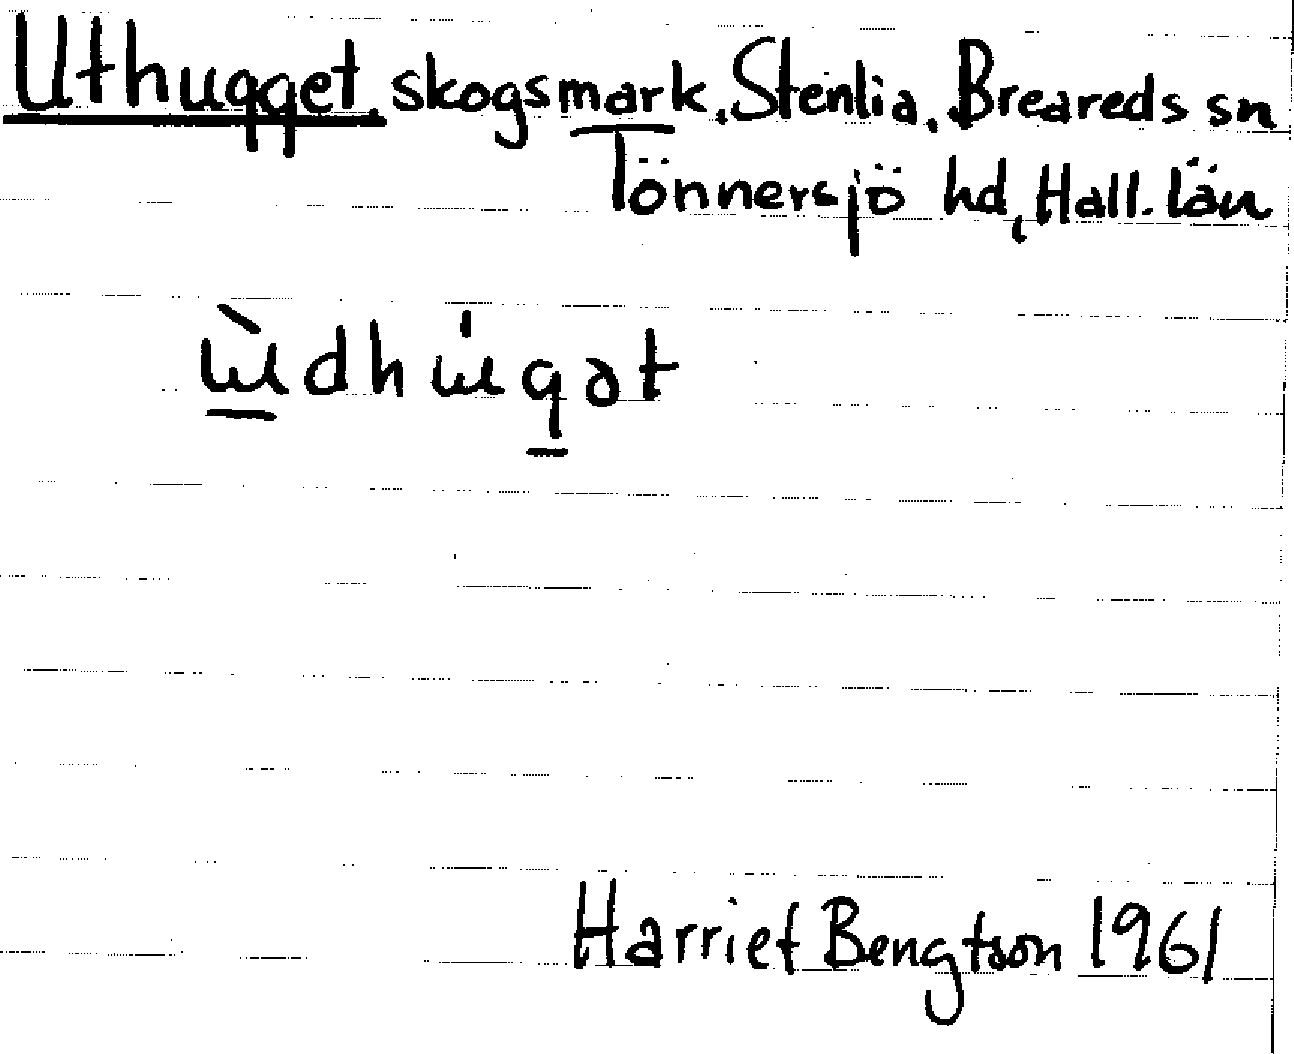 Uthugget. skogsmark. Stenlia. Breareds sn
Tönnersjö hd, Hall. län
ɯ̀dhɯ̍gət
Harriet Bengtson 1961